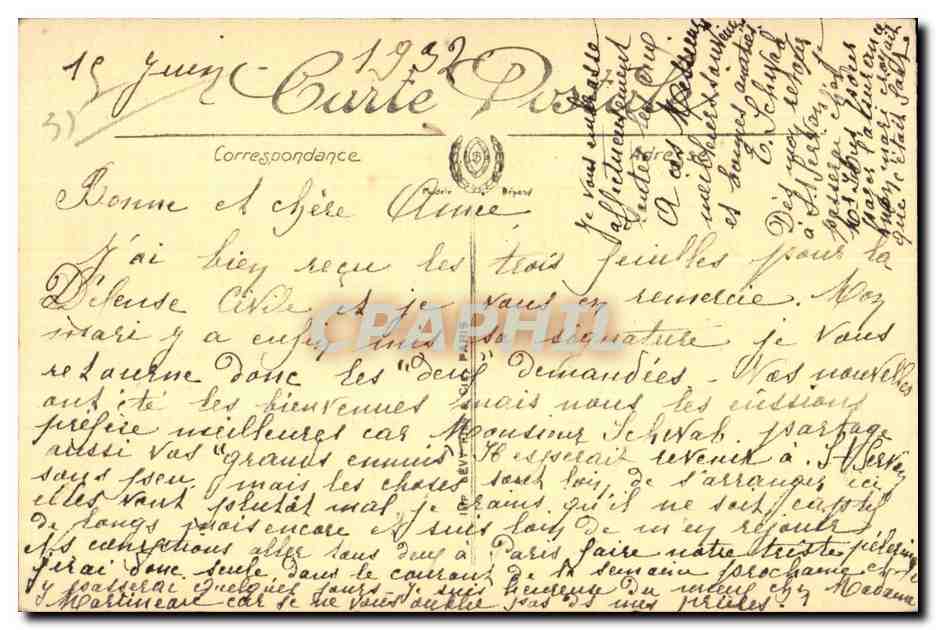 15 Juin - 1932
Carte Postale
Correspondance
Adresse
Modèle Déposé
Bonne et chère Anne
J'ai bien reçu les trois feuilles pour la
Défense Civile et je vous en remercie. Mon
mari y a enfin mis sa signature je vous
retourne donc les "deux" demandées - Vos nouvelles
ont été les bienvenues mais nous les eussions
préféré meilleures car Monsieur Schwab. partage
aussi vos "grands ennuis" Il espérait revenir à St Servan
sous peu, mais les choses sont loin de s'arranger ici
elles vont plutôt mal, je crains qu'il ne soit captif
de longs mois encore et suis loin de m'en réjouir
Ns comptions aller tous deux à Paris faire notre triste pèlerinage
j'irai donc seule dans le courant de la semaine prochaine et
y passerai quelques jours - je suis heureuse du mieux en Madame
Martineau car je ne vous oublie pas ds mes prières.
Je vous embrasse
affectueusement
toute
A ces Messieurs
meilleurs souvenirs
es bonnes amitiés
E. Schwab
Dès mon retour
à St Servan je
passerai chez
Ns
que c'était
CPAPHIL
IMP LÉVY PARIS